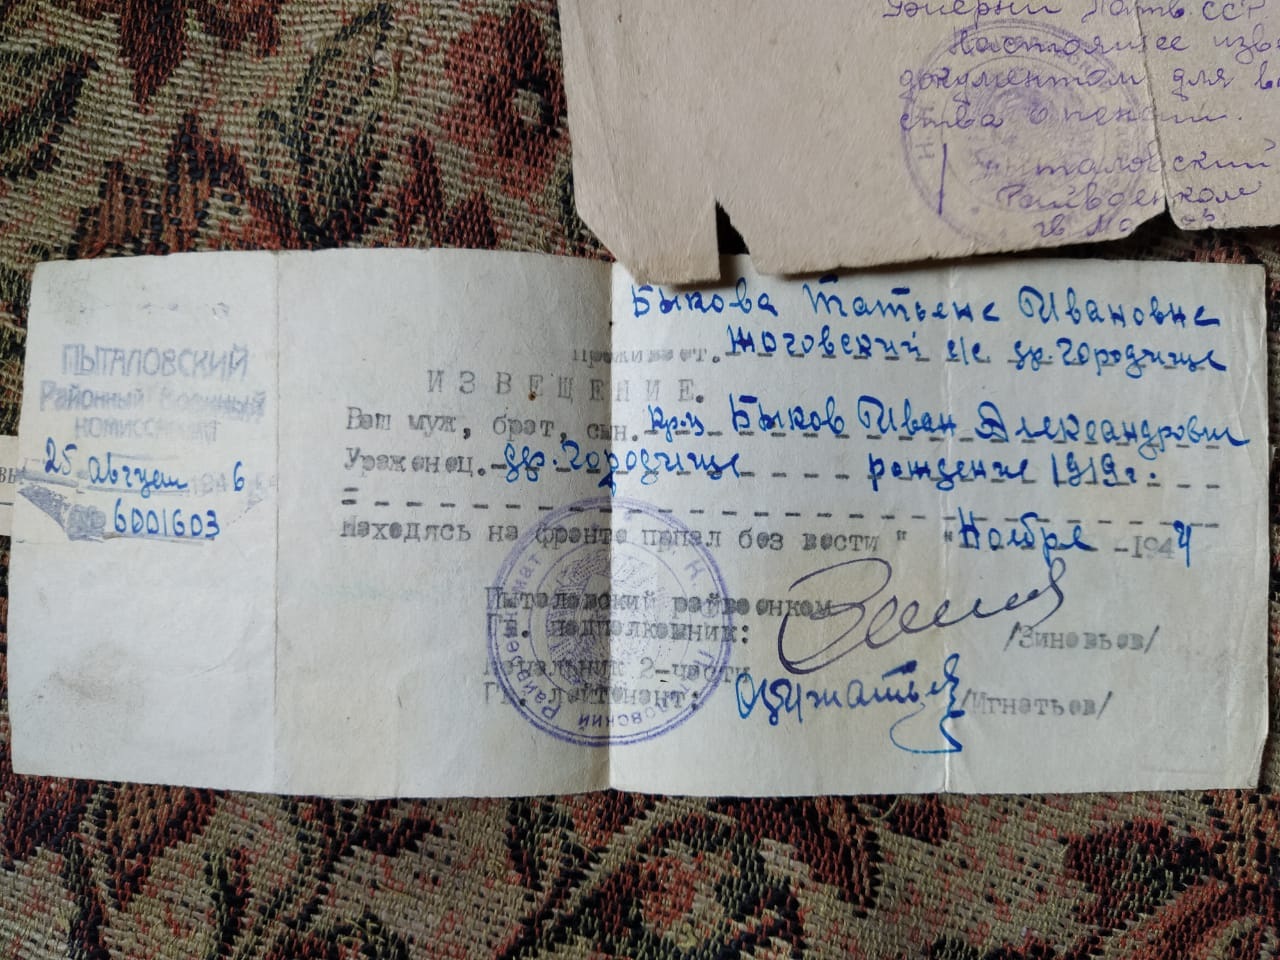 Латв. ССР
Настоящее изве
документом для в
ства о пенсии.
Пыталовский
Райвоенком
гв
ПЫТАЛОВСКИЙ
Районный Военный
КОМИССАРИАТ
25 август 1946
6001603
Быкова Татьяне Ивановне
проживает. Жоговский с/с др. Городище
ИЗВЕЩЕНИЕ.
Ваш муж, брат, сын. кр-ц Быков Иван Александрович
Уроженец. др. Городище рождение 1919 г.
Находясь на фронте пропал без вести " " Ноября -1944
Пыталовский райвоенком
Гв. подполковник: /Зиновьев/
Начальник 2-части
Гв. Лейтенант: /Игнатьев/